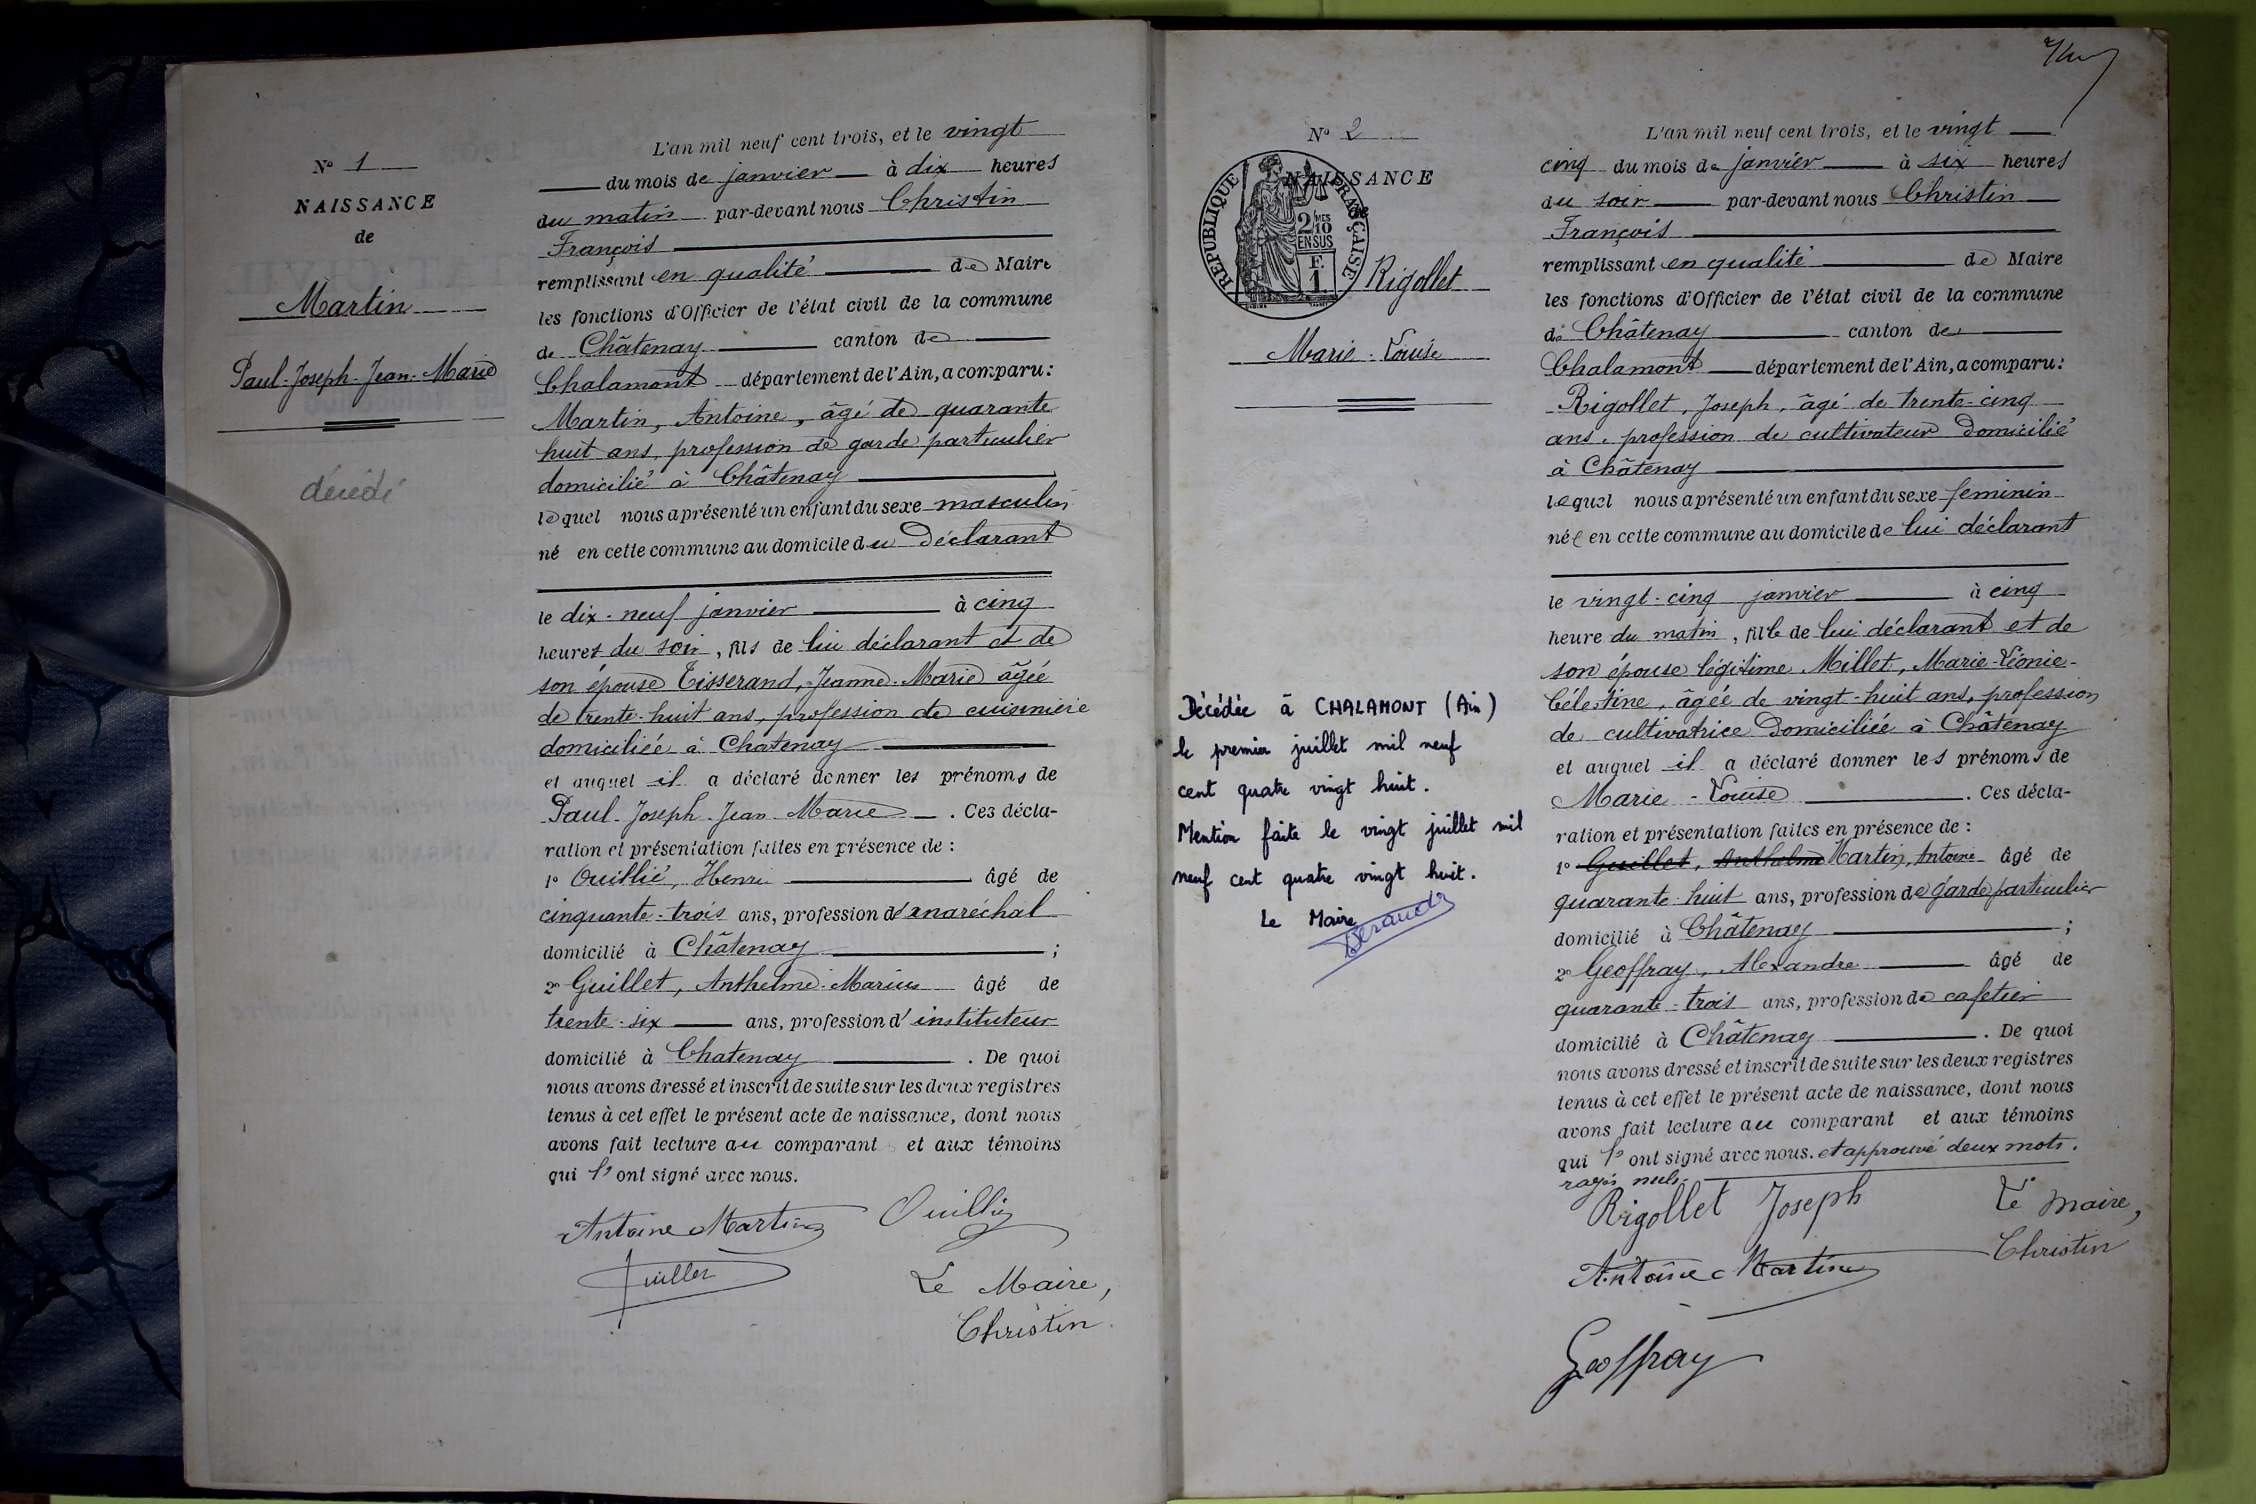 N° 1
NAISSANCE
de
Martin
Paul-Joseph-Jean-Marie
décédé
L'an mil neuf cent trois, et le vingt
du mois de janvier à dix heures
du matin par-devant nous Christin
François
remplissant en qualité de Maire
les fonctions d'Officier de l'état civil de la commune
de Châtenay canton de
Chalamont département de l'Ain, a comparu:
Martin, Antoine, âgé de quarante
huit ans, profession de garde particulier
domicilié à Châtenay
lequel nous a présenté un enfant du sexe masculin
né en cette commune au domicile du Déclarant
le dix-neuf janvier à cinq
heures du soir, fils de lui déclarant et de
son épouse Tisserand, Jeanne-Marie âgée
de trente-huit ans, profession de cuisinière
domiciliée à Chatenay
et auquel il a déclaré donner les prénoms de
Paul-Joseph-Jean-Marie. Ces décla-
ration et présentation faites en présence de :
1° Ouillié, Henri âgé de
cinquante-trois ans, profession de maréchal
domicilié à Châtenay ;
2° Guillet, Anthelme-Marius âgé de
trente-six ans, profession d'instituteur
domicilié à Chatenay. De quoi
nous avons dressé et inscrit de suite sur les deux registres
tenus à cet effet le présent acte de naissance, dont nous
avons fait lecture au comparant et aux témoins
qui l'ont signé avec nous.
Antoine Martin Ouillié
Guillet
Le Maire,
Christin
N° 2
NAISSANCE
de
RÉPUBLIQUE FRANÇAISE
2/10 MES
EN SUS
F.
1.
Rigollet
Marie-Louise
Décédée à CHALAMONT (Ain)
le premier juillet mil neuf
cent quatre vingt huit.
Mention faite le vingt juillet mil
neuf cent quatre vingt huit.
Le Maire
L'an mil neuf cent trois, et le vingt
cinq du mois de janvier à six heures
du soir par-devant nous Christin
François
remplissant en qualité de Maire
les fonctions d'Officier de l'état civil de la commune
de Châtenay canton de
Chalamont département de l'Ain, a comparu:
Rigollet, Joseph, âgé de trente-cinq
ans, profession de cultivateur Domicilié
à Châtenay
lequel nous a présenté un enfant du sexe feminin
née en cette commune au domicile de lui déclarant
le vingt-cinq janvier à cinq
heure du matin, fille de lui déclarant et de
son épouse légitime Millet, Marie-Léonie-
Célestine, âgée de vingt-huit ans, profession
de cultivatrice Domiciliée à Châtenay
et auquel il a déclaré donner les prénoms de
Marie-Louise. Ces décla-
ration et présentation faites en présence de :
1° Guillet, Anthelme Martin, Antoine âgé de
quarante-huit ans, profession de garde particulier
domicilié à Châtenay ;
2° Geoffray, Alexandre âgé de
quarante-trois ans, profession de cafetier
domicilié à Châtenay. De quoi
nous avons dressé et inscrit de suite sur les deux registres
tenus à cet effet le présent acte de naissance, dont nous
avons fait lecture au comparant et aux témoins
qui l'ont signé avec nous. et approuvé deux mots.
rayés nuls.
Rigollet Joseph Le Maire,
Antoine Martin Christin
Geoffray